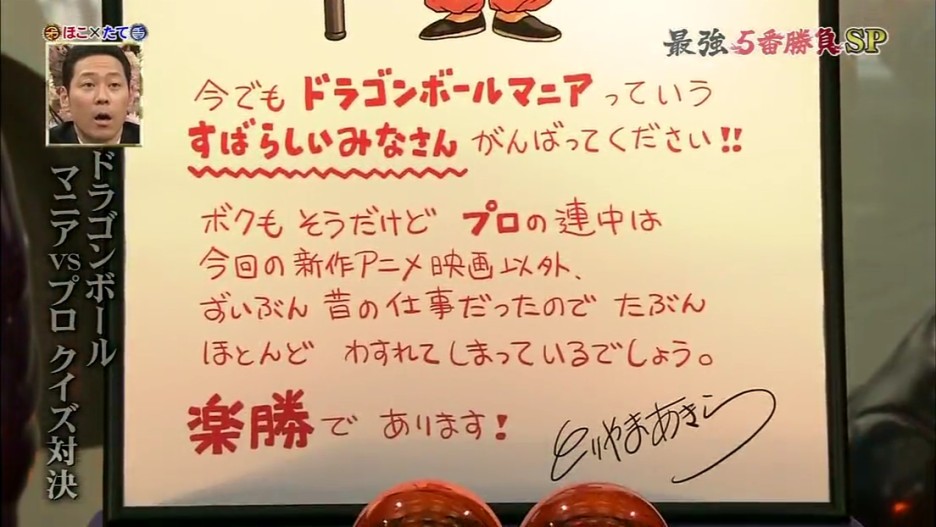 ほこ×たて
最強5番勝負SP
ドラゴンボール
マニアvsプロ クイズ対決
今でも ドラゴンボールマニア っていう
すばらしいみなさん がんばってください!!
ボクも そうだけど プロの連中は
今回の新作アニメ映画以外、
ずいぶん 昔の仕事だったので たぶん
ほとんど わすれてしまっているでしょう。
楽勝で あります!
とりやまあきら